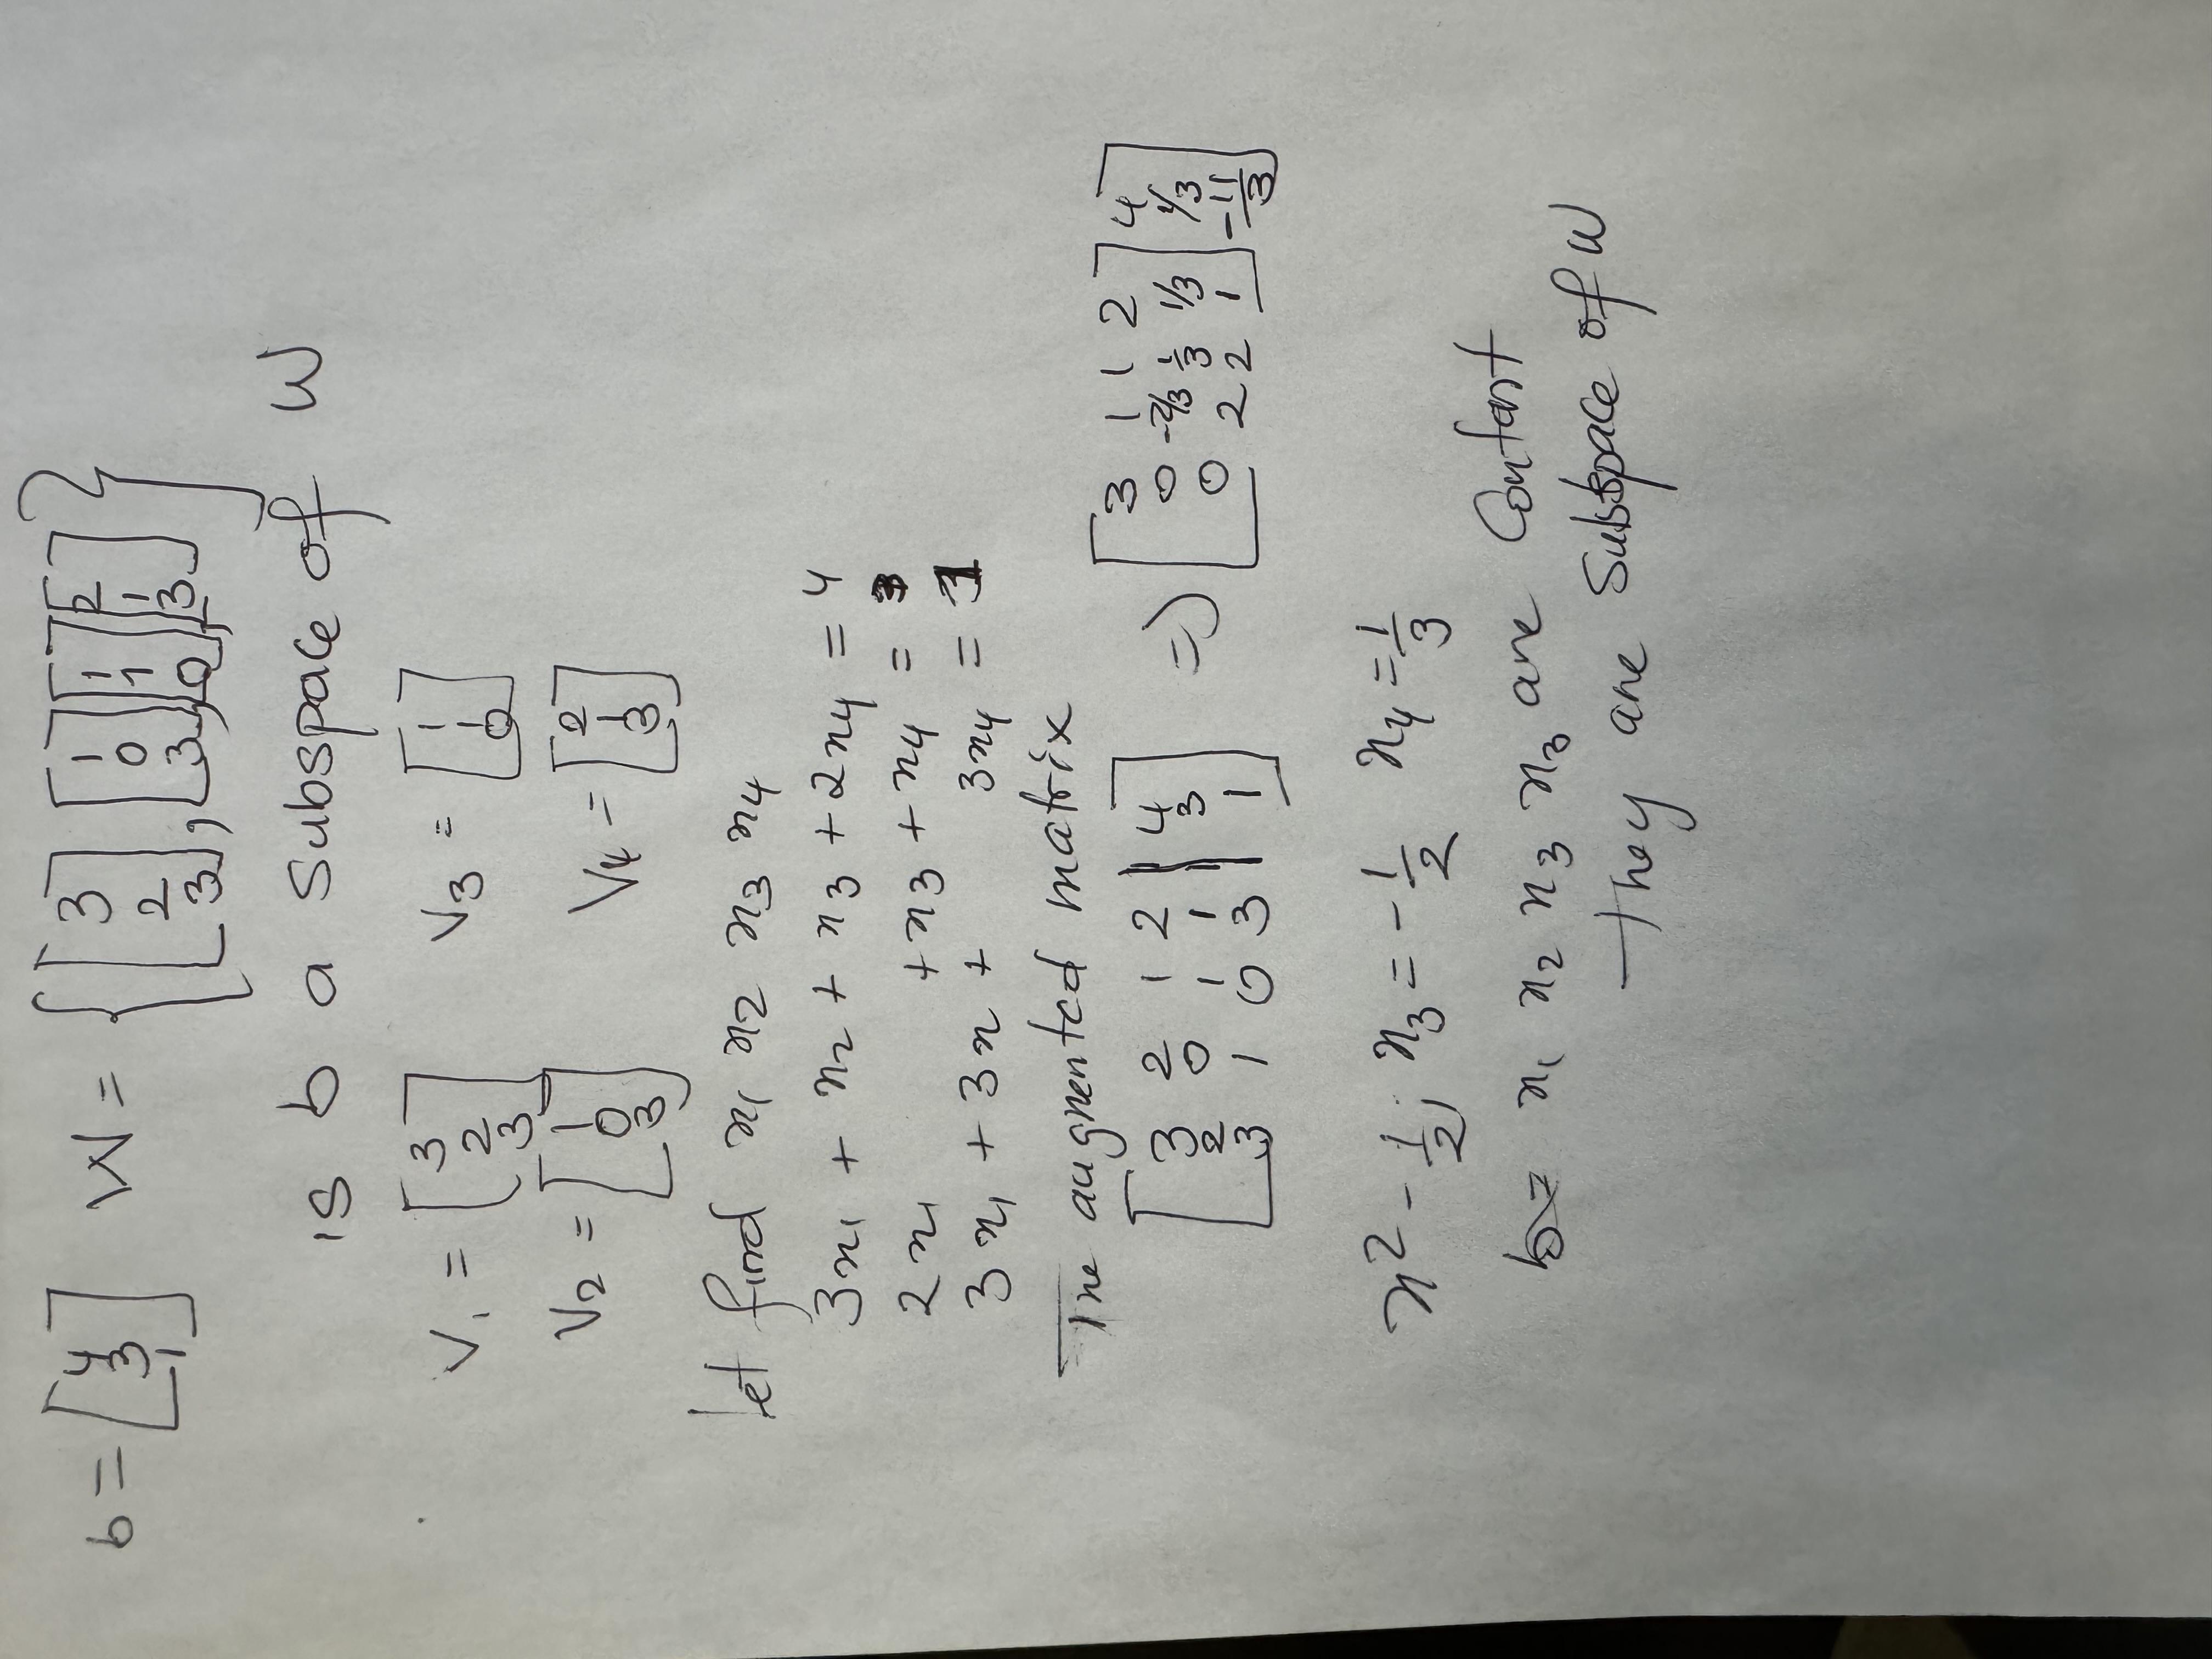 b = [4 3 1] W = { [3 2 3], [1 0 3], [1 1 0], [2 1 3] }
is b a subspace of W
V1 = [3 2 3] V3 = [1 1 0]
V2 = [1 0 3] V4 = [2 1 3]
let find x1 x2 x3 x4
3x1 + x2 + x3 + 2x4 = 4
2x1 + x3 + x4 = 3
3x1 + 3x + 3x4 = 1
The augmented matrix
[3 2 1 2 | 4] => [3 1 1 2 | 4]
[2 0 1 1 | 3] [0 -2/3 1/3 1/3 | 1/3]
[3 1 0 3 | 1] [0 2 2 1 | -11/3]
x2 - 1/2; x3 = -1/2 x4 = 1/3
b = x1 x2 x3 x3 are
They are Subspace of W